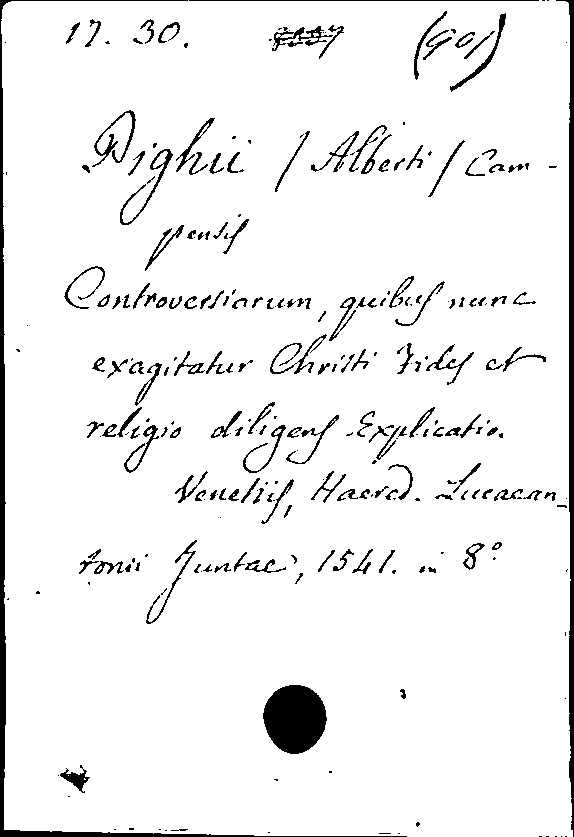 17. 30. (901)
Pighii / Alberti / Cam-
pensis
Controversiarum, quibus nunc
exagitatur Christi Fides et
religio diligens Explicatio.
Venetiis, Haered. Lucaean-
tonii Juntae, 1541. in 8°